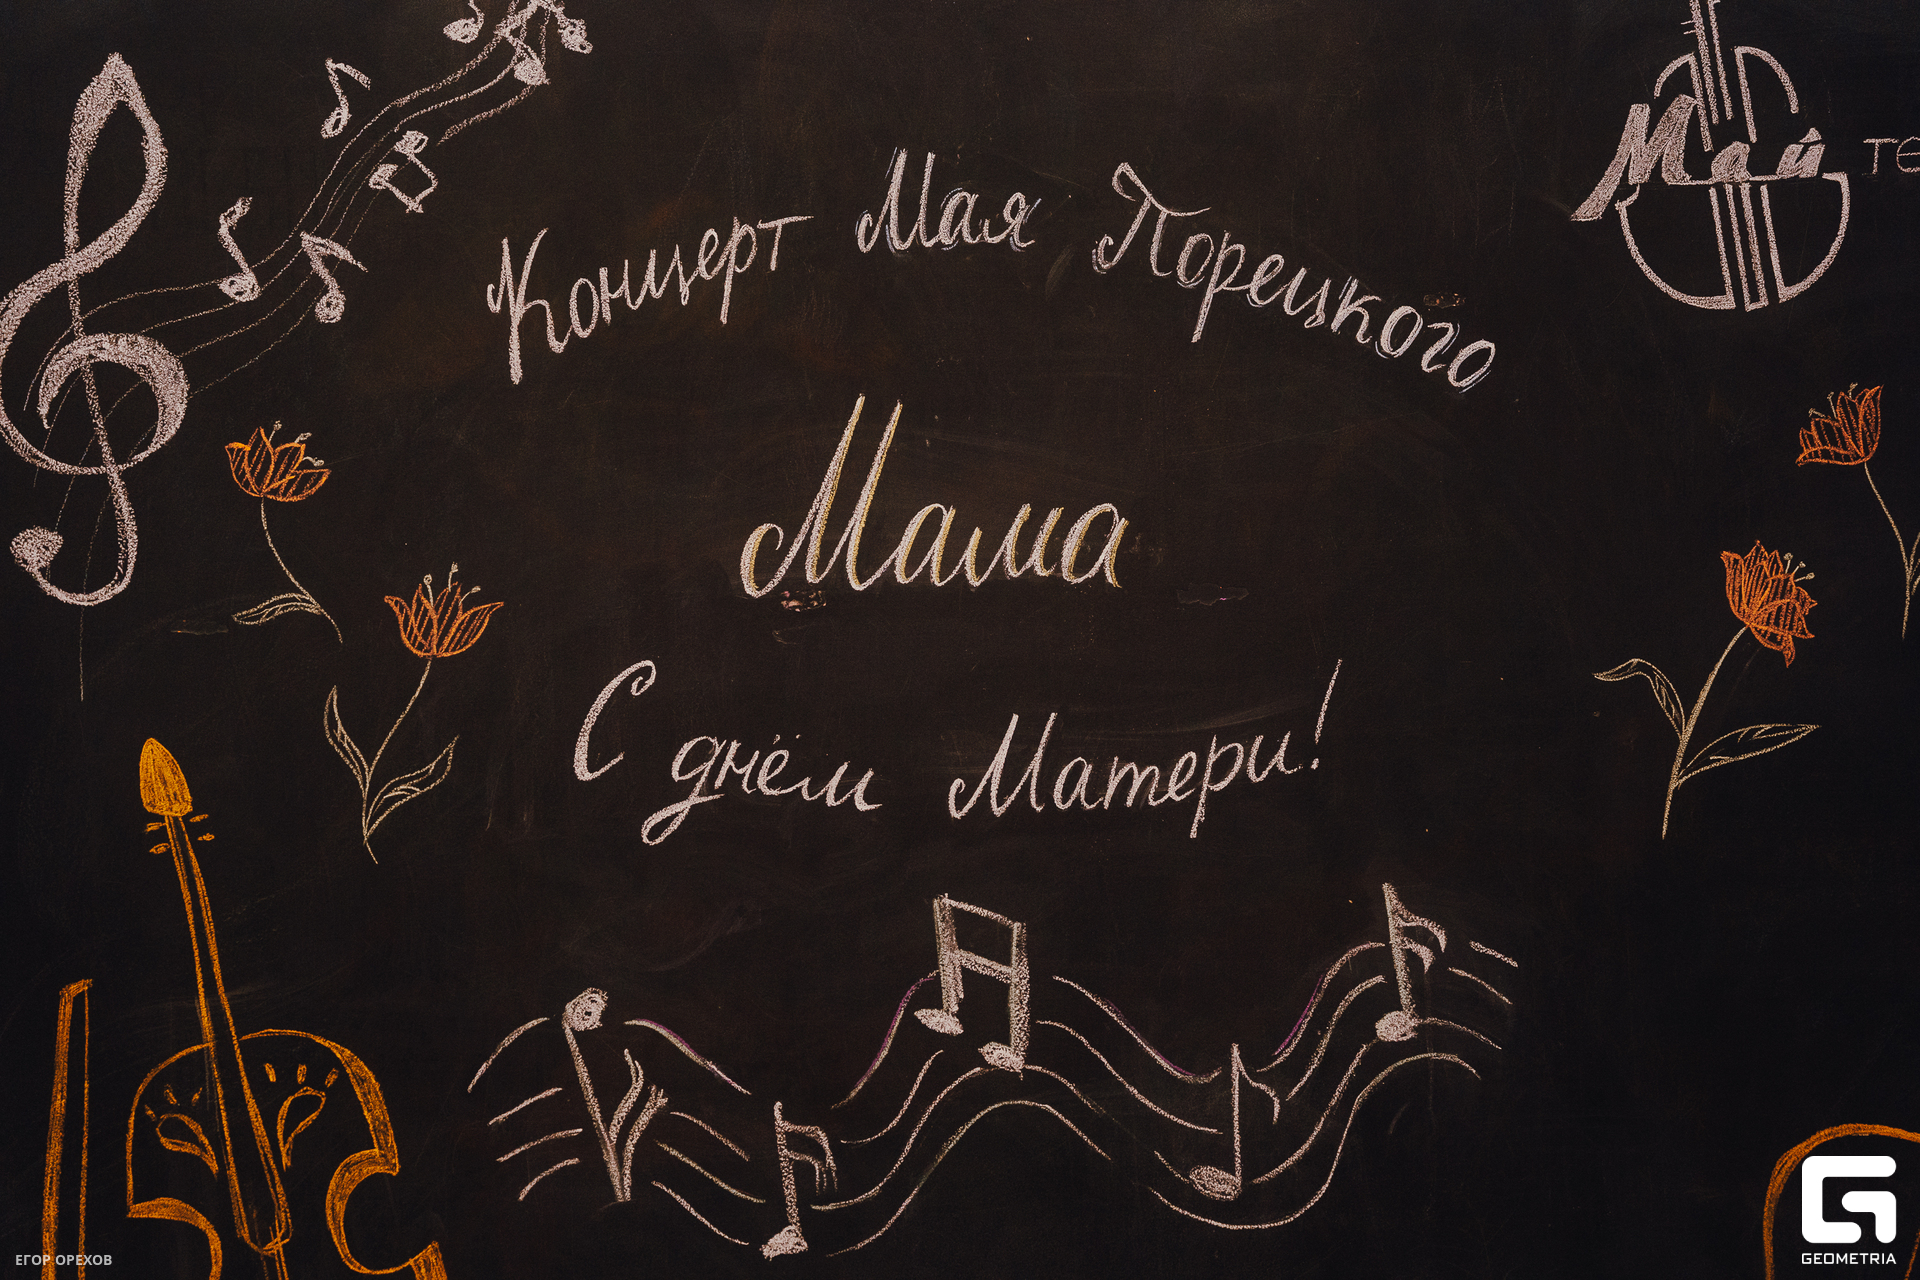 Май те
Концерт Мая Порецкого
Мама
С днём Матери!
ЕГОР ОРЕХОВ
GEOMETRIA